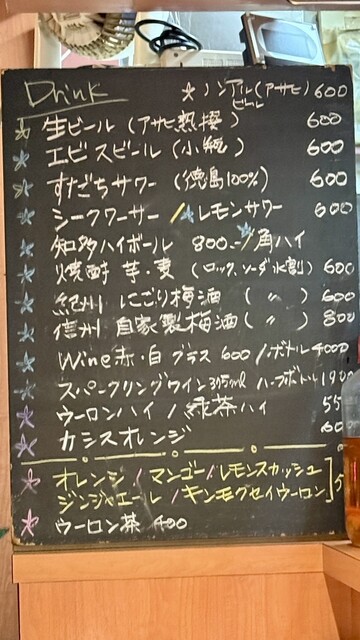 Drink ☆ノンアルビール(アサヒ) 600
☆生ビール (アサヒ熟撰) 600
☆エビスビール (小瓶) 600
☆すだちサワー (徳島100%) 600
☆シークワーサー / ☆レモンサワー 600
☆知多ハイボール 800 / ☆角ハイ
☆焼酎 芋・麦 (ロック、ソーダ、水割) 600
☆紀州 にごり梅酒 ( 〃 ) 600
☆信州 自家製梅酒 ( 〃 ) 800
☆Wine 赤・白 グラス 600 / ボトル 4000
☆スパークリングワイン 375ml ハーフボトル
☆ウーロンハイ / 緑茶ハイ 55
☆カシスオレンジ 60
☆オレンジ / マンゴー / レモンスカッシュ
ジンジャエール / キンモクセイウーロン] 5
☆ウーロン茶 400